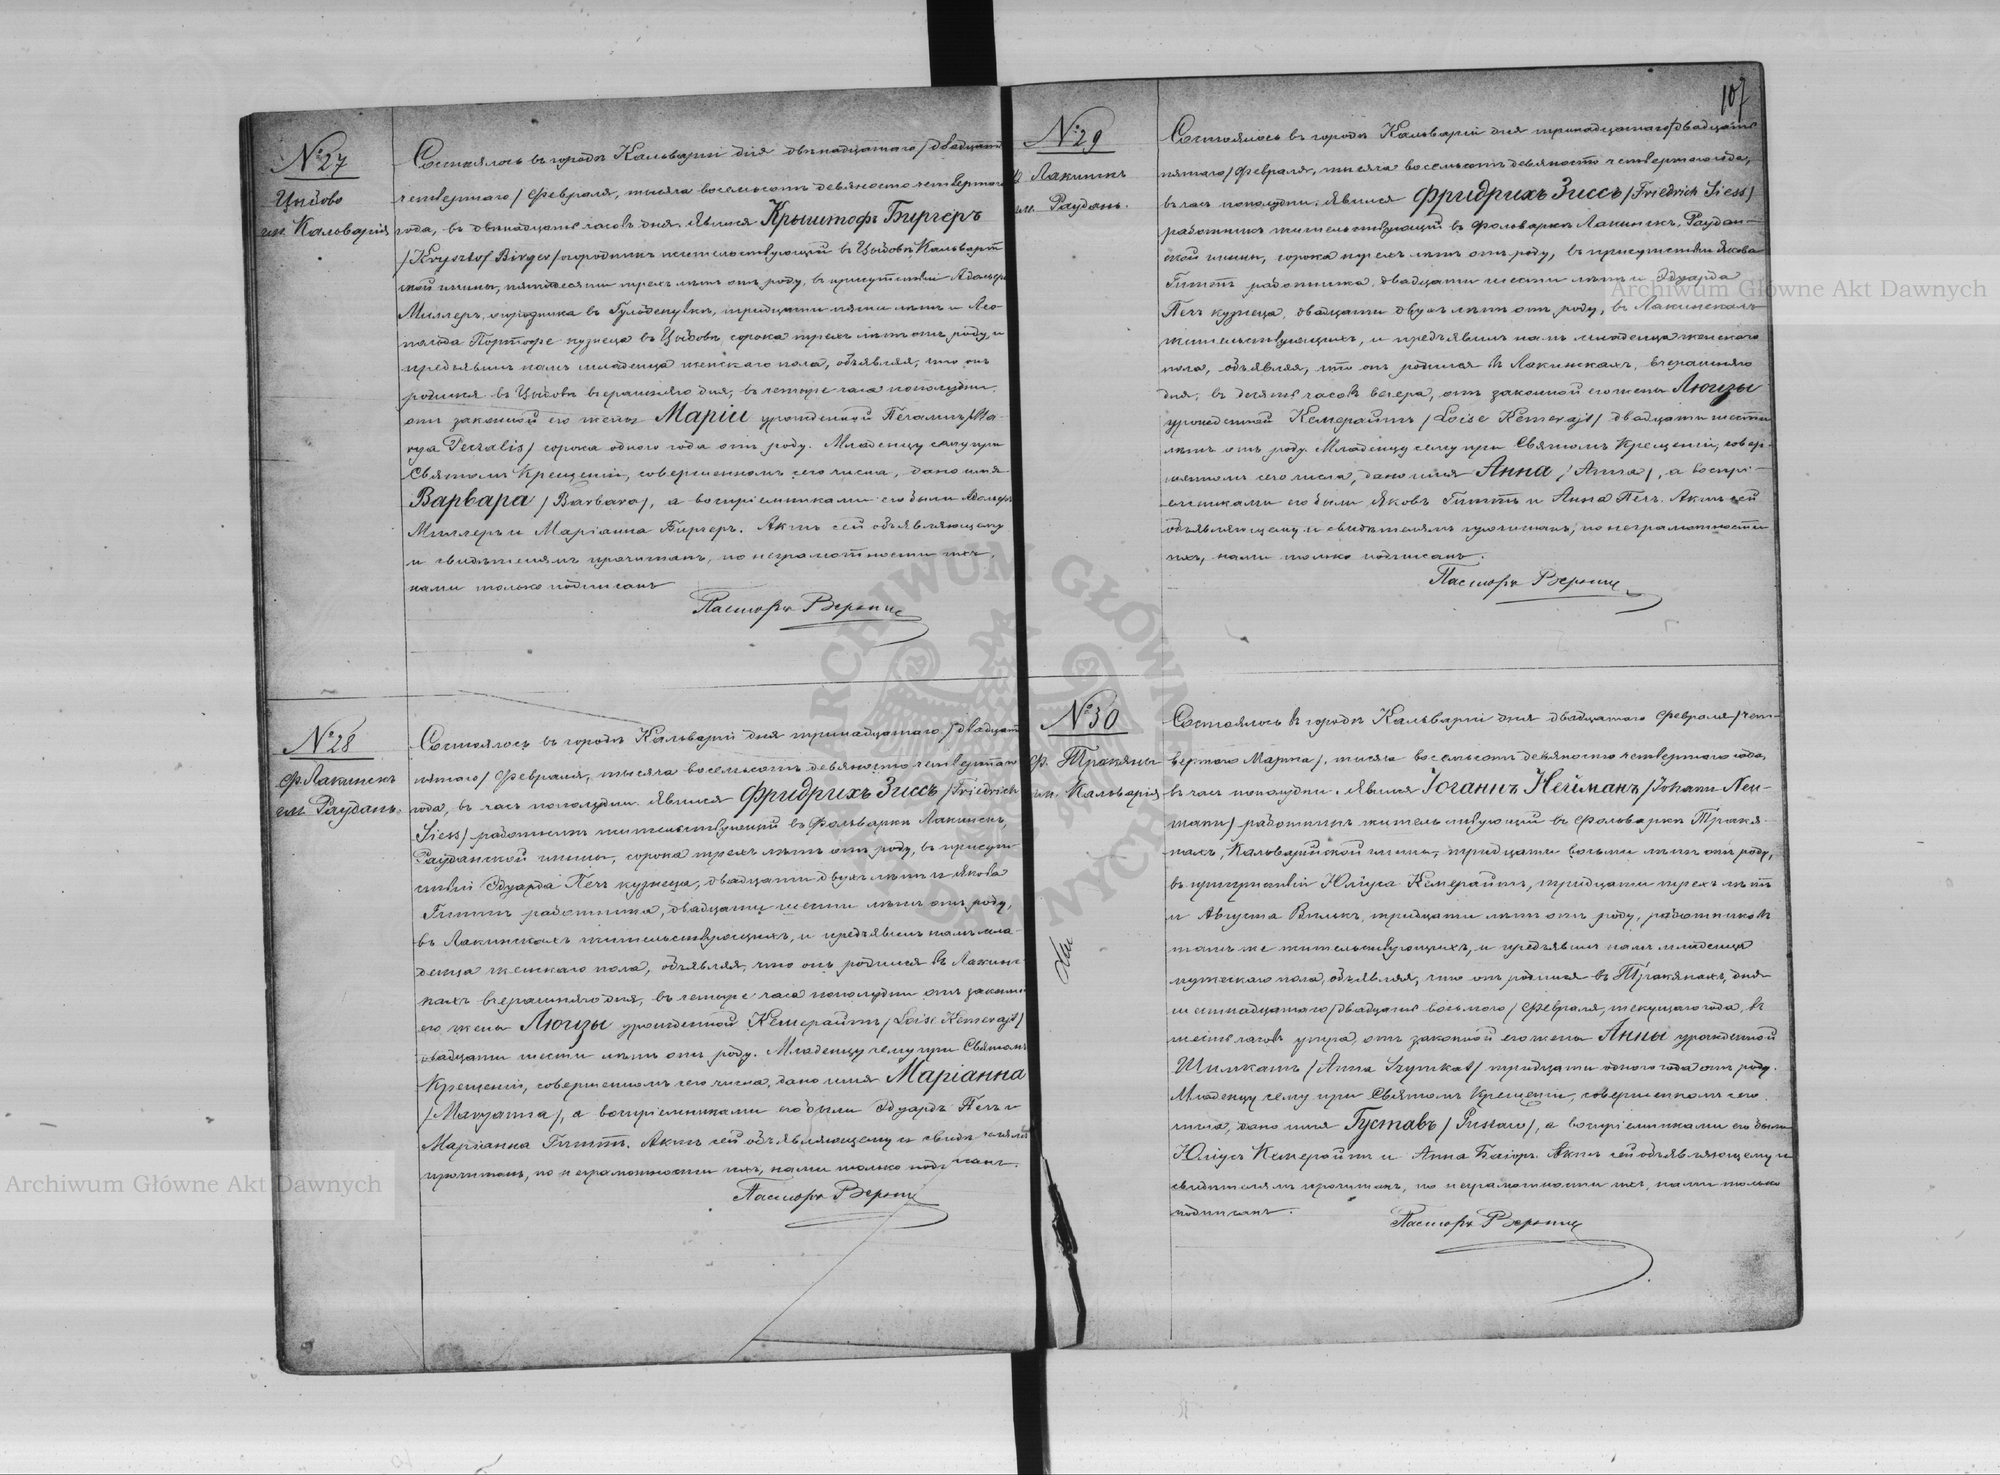 № 27
Цыбово
гм. Кальварія
Состоялось въ городѣ Кальваріи дня двѣнадцатаго /двадцать
четвертаго/ Февраля, тысяча восемьсотъ девяносто четвертаго
года, въ двѣнадцать часовъ дня. Явился Крыштофъ Биргеръ
/Krysztof Birger/ огородникъ жительствующій въ Цыбовѣ Кальварій
ской гмины, пятидесяти трехъ лѣтъ отъ роду, въ присутствіи Адольфа
Миллеръ, огородника въ тридцати пяти лѣтъ и Лео
польда кузнеца въ Цыбовѣ, сорока трехъ лѣтъ отъ роду, и
предъявилъ намъ младенца женскаго пола, объявляя, что онъ
родился въ Цыбовѣ вчерашняго дня, въ четыре часа пополудни
отъ законной его жены Маріи урожденной /Ma
rya / сорока одного года отъ роду. Младенцу сему при
Святомъ Крещеніи, совершенномъ сего числа, дано имя
Варвара /Barbara/, а воспріемниками его были Адольфъ
Миллеръ и Маріанна Биргеръ. Актъ сей объявляющему
и свидѣтелямъ прочитанъ, по неграмотности ихъ,
нами только подписанъ
Пасторъ
№ 28
Ф. Лакинскъ
гм. Раудань.
Состоялось въ городѣ Кальваріи дня тринадцатаго /двадцать
пятаго/ Февраля, тысяча восемьсотъ девяносто четвертаго
года, въ часъ пополудни. Явился Фридрихъ Зиссъ /Friedrich
Siess/ работникъ жительствующій въ Фольваркѣ Лакинскъ,
Рауданской гмины, сорока трехъ лѣтъ отъ роду, въ присут-
ствіи Эдуарда Печъ кузнеца, двадцати двухъ лѣтъ и Якова
работника, двадцати шести лѣтъ отъ роду,
въ Лакинскахъ жительствующихъ, и предъявилъ намъ мла-
денца женскаго пола, объявляя, что онъ родился въ Лакинс-
кахъ вчерашняго дня, въ четыре часа пополудни отъ законной
его жены Люизы урожденной Кемерайтъ /Loise Kemerajt/
двадцати шести лѣтъ отъ роду. Младенцу сему при Святомъ
Крещеніи, совершенномъ сего числа, дано имя Маріанна
/Maryanna/, а воспріемниками его были Эдуардъ Печъ и
Маріанна Актъ сей объявляющему и свидѣтелямъ
прочитанъ, по неграмотности ихъ, нами только подписанъ.
Пасторъ
107
№ 29
Лакинскъ
гм. Раудань.
Состоялось въ городѣ Кальваріи дня тринадцатаго /двадцать
пятаго/ Февраля, тысяча восемьсотъ девяносто четвертаго года,
въ часъ пополудни. Явился Фридрихъ Зиссъ /Friedrich Siess/
работникъ жительствующій въ Фольваркѣ Лакинскъ, Раудан-
ской гмины, сорока трехъ лѣтъ отъ роду, въ присутствіи Якова
работника, двадцати шести лѣтъ и Эдуарда
Печъ кузнеца, двадцати двухъ лѣтъ отъ роду, въ Лакинскахъ
жительствующихъ, и предъявилъ намъ младенца женскаго
пола, объявляя, что онъ родился въ Лакинскахъ, вчерашняго
дня, въ десять часовъ вечера, отъ законной его жены Люизы
урожденной Кемерайтъ /Loise Kemerajt/ двадцати шести
лѣтъ отъ роду. Младенцу сему при Святомъ Крещеніи, совер-
шенномъ сего числа, дано имя Анна /Anna/, а воспрі-
емниками его были Яковъ и Анна Печъ. Актъ сей
объявляющему и свидѣтелямъ прочитанъ, по неграмотности
ихъ, нами только подписанъ.
Пасторъ
№ 30
Ф. Тракяны
гм. Кальварія
Состоялось въ городѣ Кальваріи дня двадцатаго Февраля /чет-
вертаго Марта/, тысяча восемьсотъ девяносто четвертаго года,
въ часъ пополудни. Явился Іоганнъ Нейманъ /Johann Neu-
mann/ работникъ жительствующій въ Фольваркѣ Тракя-
нахъ, Кальварійской гмины, тридцати восьми лѣтъ отъ роду,
въ присутствіи Юліуса Кемерайтъ, тридцати трехъ лѣтъ
и Августа Вилькъ, тридцати лѣтъ отъ роду, работниковъ
тамъ же жительствующихъ, и предъявилъ намъ младенца
мужескаго пола, объявляя, что онъ родился въ Тракянахъ, дня
шестнадцатаго /двадцать восьмого/ Февраля, текущаго года, въ
шесть часовъ утра, отъ законной его жены Анны урожденной
Шимкатъ /Anna Szymkat/ тридцати одного года отъ роду.
Младенцу сему при Святомъ Крещеніи, совершенномъ сего
числа, дано имя Густавъ /Gustaw/, а воспріемниками его были
Юліусъ Кемерайтъ и Анна Актъ сей объявляющему и
свидѣтелямъ прочитанъ, по неграмотности ихъ, нами только
подписанъ.
Пасторъ
Archiwum Główne Akt Dawnych
Archiwum Główne Akt Dawnych
ARCHIWUM GŁÓWNE AKT DAWNYCH